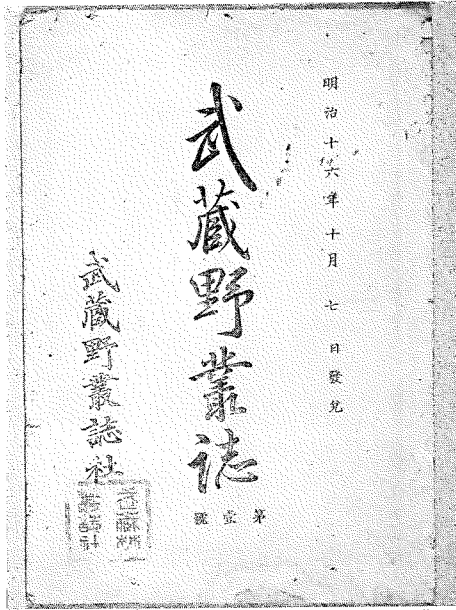 明治十六年十月七日發兌
武蔵野叢誌
第壹號
武蔵野叢誌社